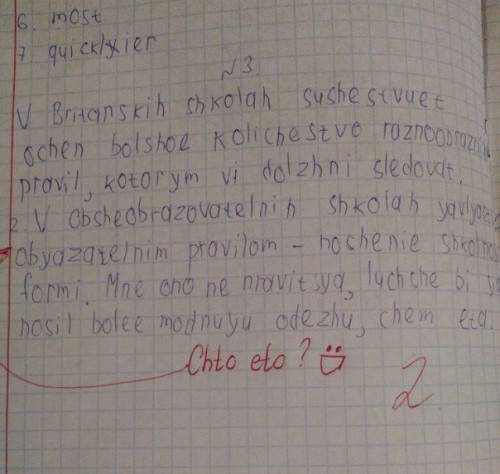 6. most
7. quicklyier
№3
V Britanskih shkolah sushestvuet
ochen bolshoe kolichestvo
pravil, kotorym vi dolzhni sledovat.
2. V obsheobrazovatelnih shkolah
obyazatelnim pravilom - noshenie
formi. Mne ono ne nravitsya, luchche bi ya
nosil bolee modnuyu odezhu, chem eta.
Chto eto?
2